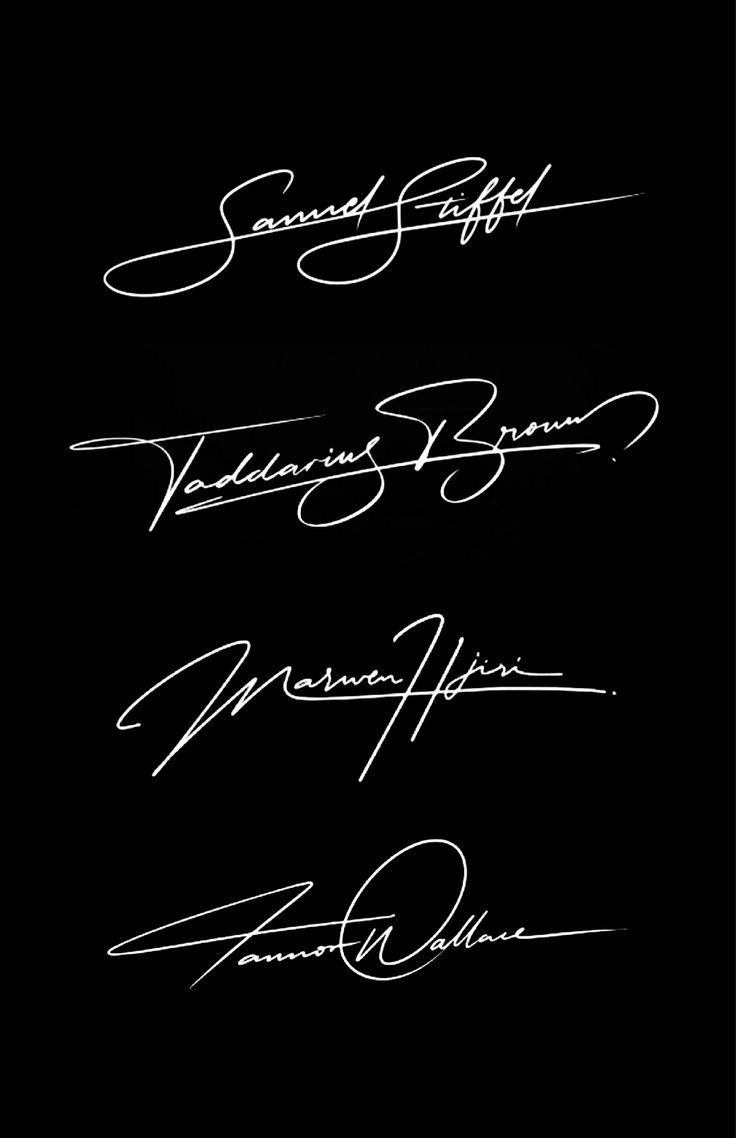 Samuel Stiffel
Taddarius Brown
Marwen Hjiri
Tannor Wallace